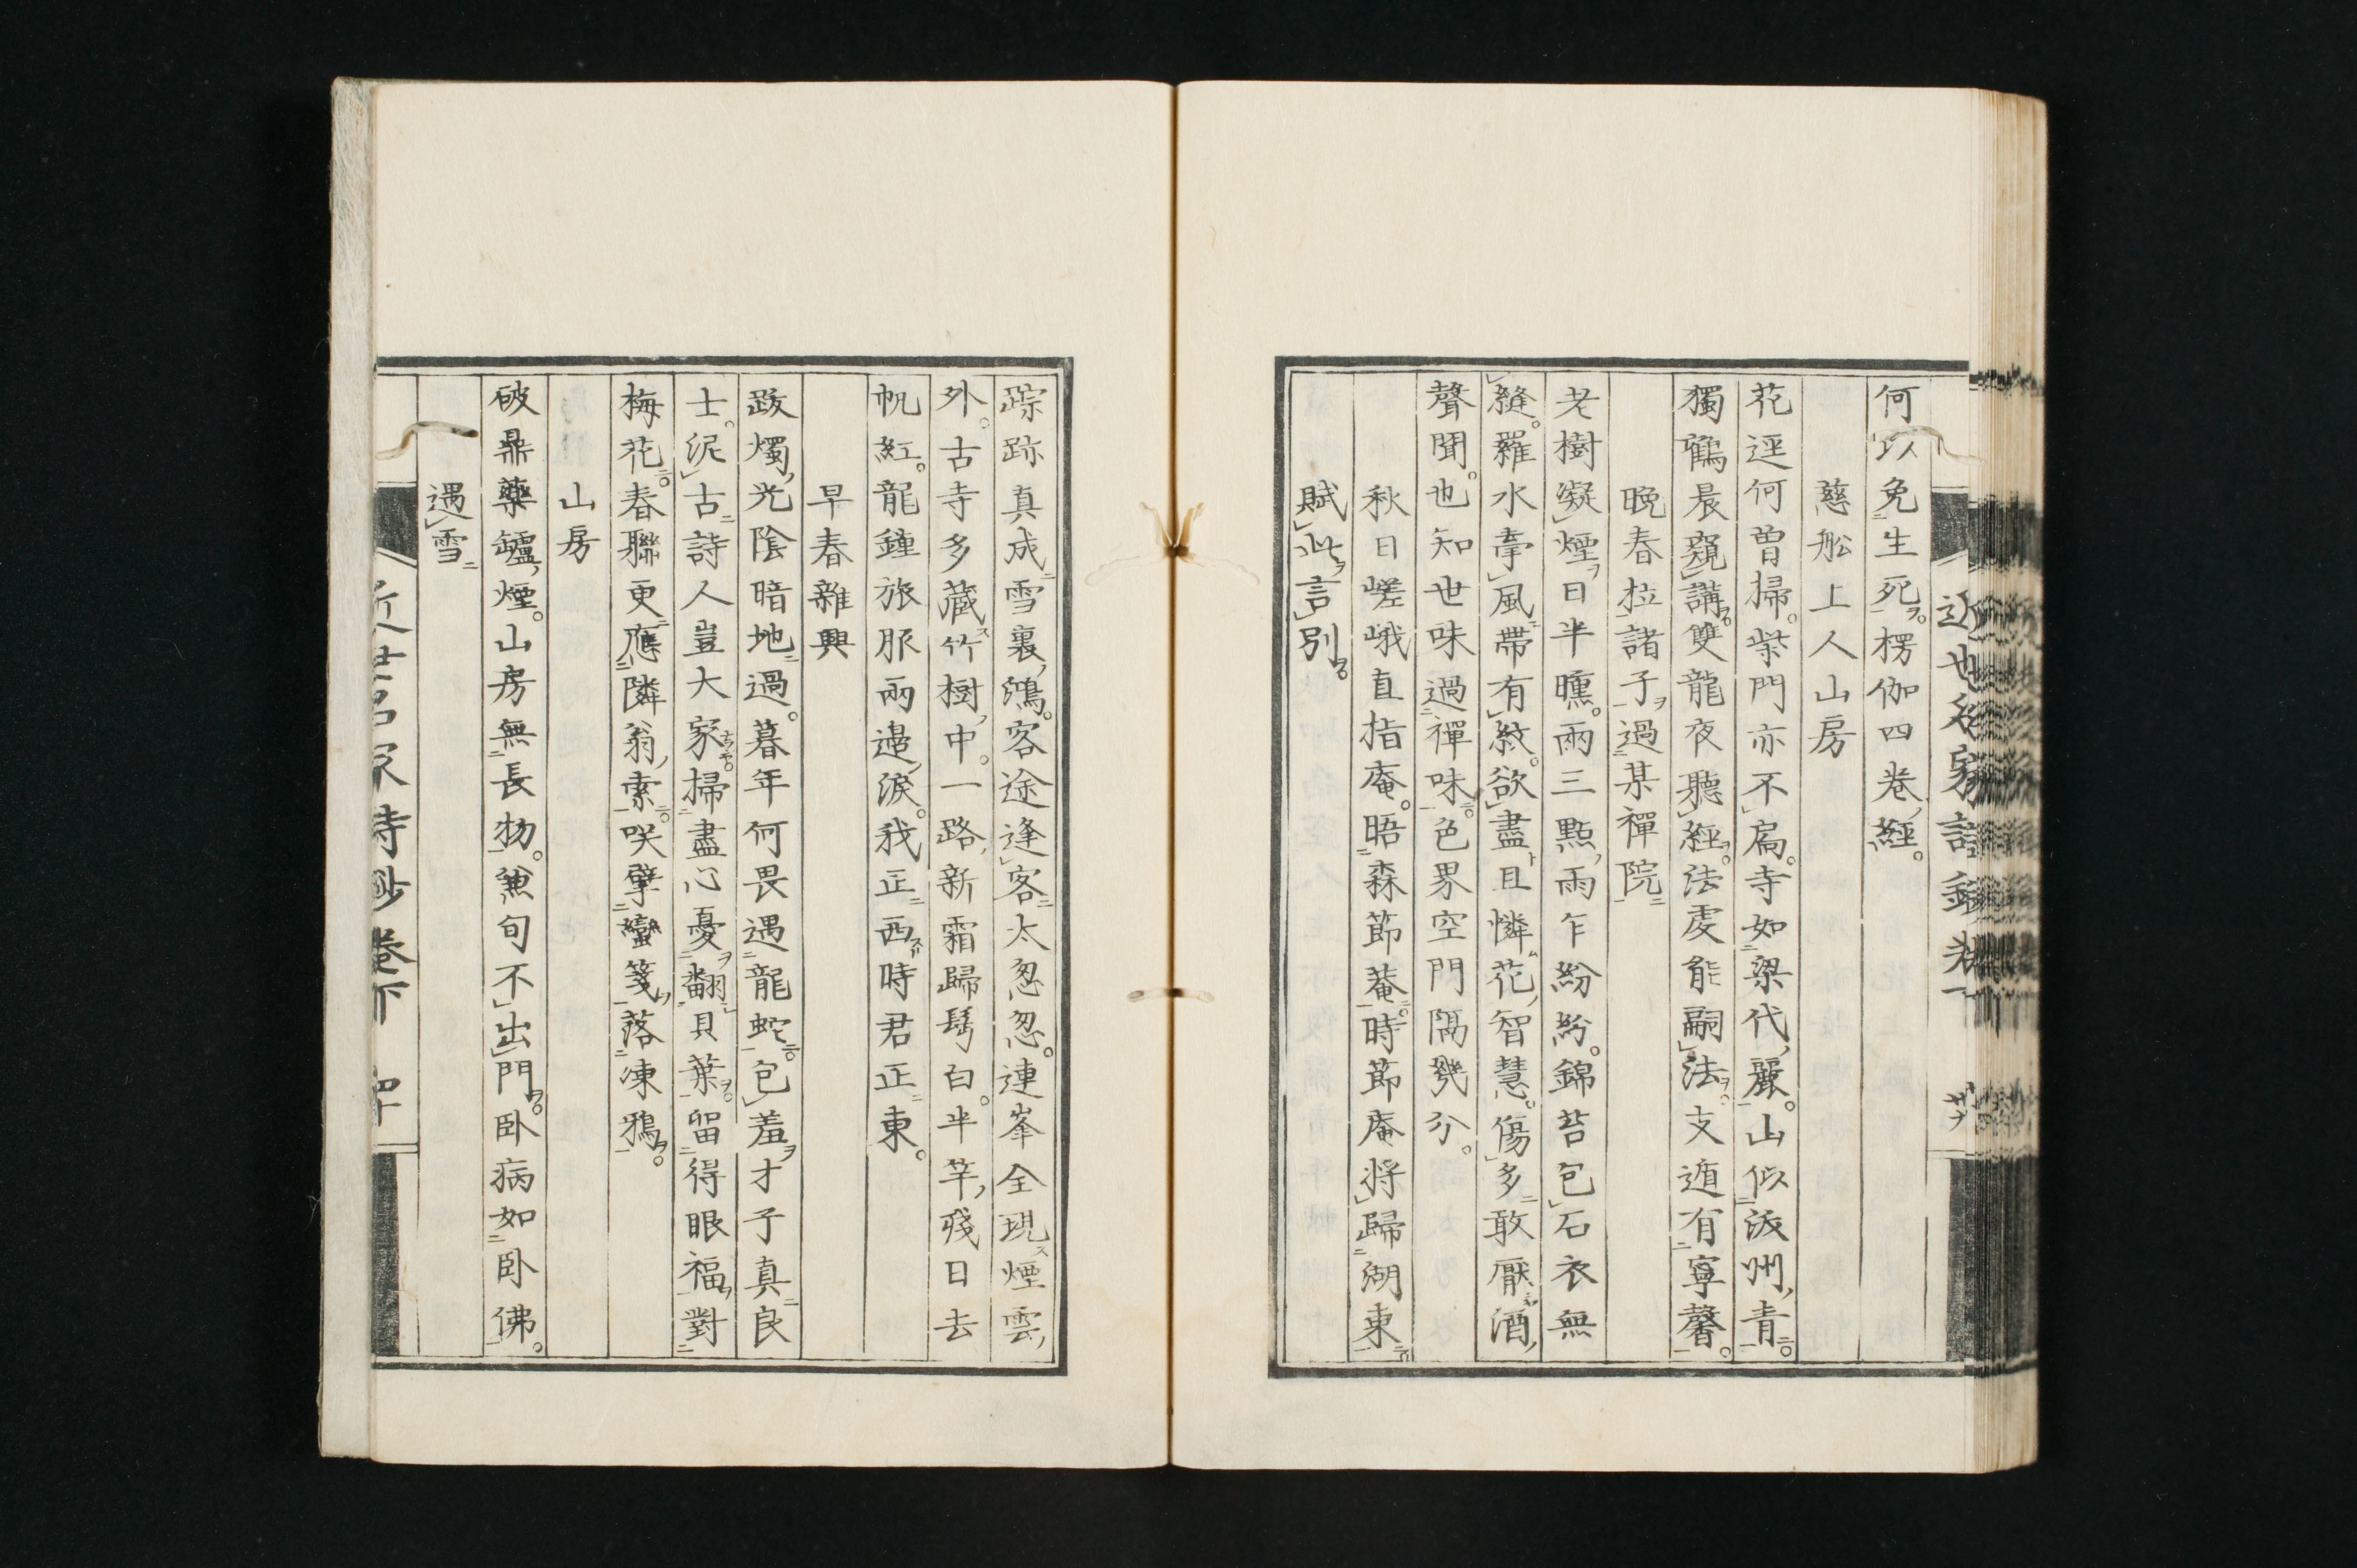 何以免生死楞伽四巻經
慈舩上人山房
花逕何曽掃柴門亦不扃寺如梁代麗山似派州青
獨鶴晨窺講雙龍夜聽經法虔能嗣法支遁有寧馨
晩春拉諸子過某禪院
老樹凝煙日半曛兩三點雨乍紛紛錦苔包石衣無
縫羅水牽風帶有紋欲盡且憐花智慧傷多敢厭酒
聲聞也知世味過禪味色界空門隔幾分
秋日嵯峨直指庵晤森節菴時節庵将歸湖東
賦此言別
踪跡真成雪裏鴻客途逢客太怱怱連峯全現煙雲
外古寺多藏竹樹中一路新霜歸髩白半竿殘日去
帆紅龍鍾旅脈兩邊淚我正西時君正東
早春雜興
跋燭光陰暗地過暮年何畏遇龍蛇包羞才子真良
士泥古詩人豈大家掃盡心憂翻貝葉留得眼福對
梅花春聯更應隣翁索咲擘蠻箋落凍鴉
山房
破鼎藥罏煙山房無長物兼旬不出門卧病如卧佛
遇雪
近世名家詩鈔巻下